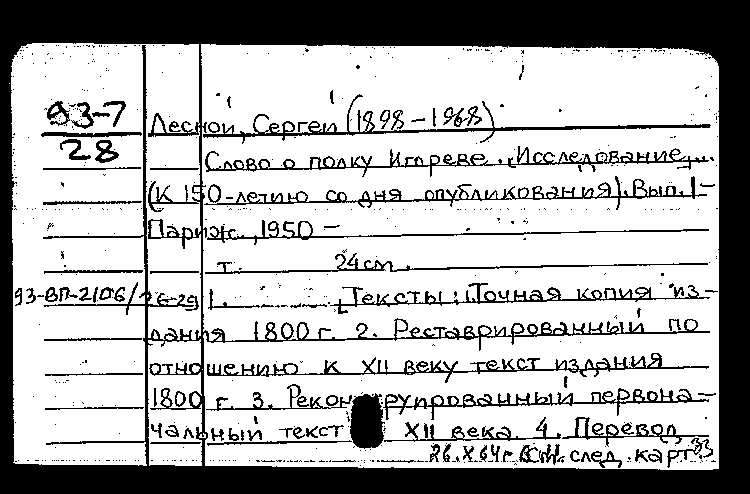 93-7
28
Лесной, Сергей (1898-1968)
Слово о полку Игореве. Исследование...
(К 150-летию со дня опубликования). Вып. 1-
Париж, 1950 -
т. 24 см.
93-ВП-2106/26-29 1. [Тексты: 1. Точная копия из-
дания 1800 г. 2. Реставрированный по
отношению к XII веку текст издания
1800 г. 3. Реконструированный первона-
чальный текст XII века 4. Перевод
26.X 64г. след. карт